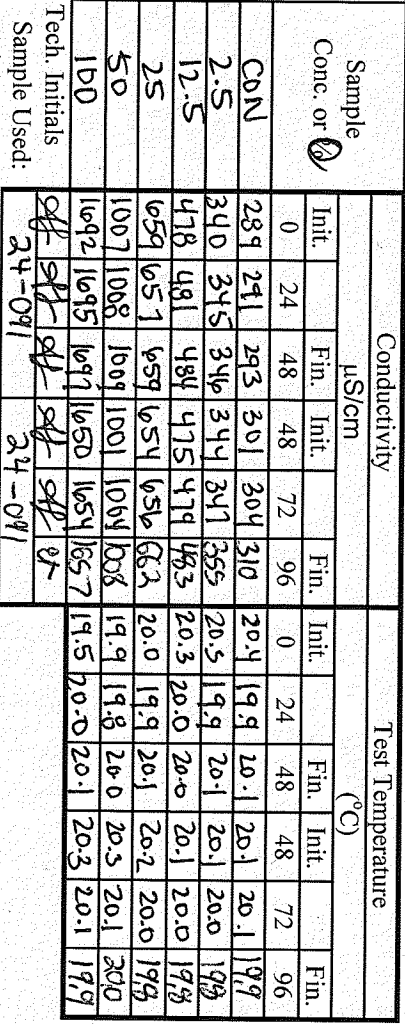 Sample Conductivity Test Temperature
Conc. or % µS/cm (°C)
Init. Fin. Init. Fin. Init. Fin. Init. Fin.
0 24 48 48 72 96 0 24 48 48 72 96
CON 289 291 293 301 304 310 20.4 19.9 20.1 20.1 20.1 19.9
2.5 340 345 346 344 347 355 20.3 19.9 20.1 20.1 20.0 19.8
12.5 478 481 484 475 479 483 20.3 20.0 20.0 20.1 20.0 19.8
25 659 657 659 654 656 662 20.0 19.9 20.1 20.2 20.0 19.8
50 1007 1008 1009 1001 1004 1008 19.9 19.8 20.0 20.3 20.1 20.0
100 1692 1695 1697 1650 1654 1657 19.5 20.0 20.1 20.3 20.1 19.9
Tech. Initials
Sample Used: 24-091 24-091